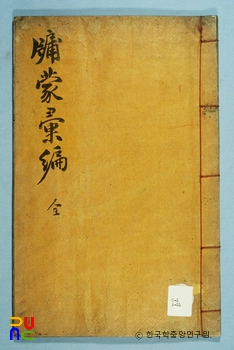 牖蒙彙編
全
© 한국학중앙연구원